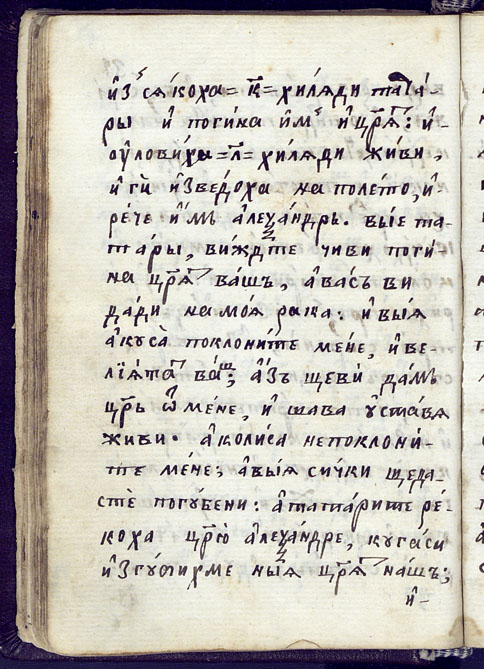 и҆зⷭ҇ся́коха = к҃ = хиля́ди тата́-
ры и҆ поги́на и҆мⷭ҇ и҆ цр҃ѧ̀: и҆-
оу҆лови́ха = л҃ = хиля́ди жи́ви,
и҆ гѝ и҆зведо́ха на поле́то, и҆
ре́че и҆мъ а҆леѯа́ндръ. вы́е та-
та́ры, ви́ждте чиви поги́-
на цр҃ѧ̀ ва́шъ, а҆ васъ ви
да́ди на моѧ́ рака: и҆ вы́ѧ
а҆кусà поклони́те ме́не, и҆ ве-
лїѧ́та ва́ш; а҆́зъ щеви̏ да́мъ
цр҃ь ѿ ме́не, и҆ шава у҆ста́вѧ
жи́ви. а҆ коли́са непоклони́-
те ме́не; а҆ вы́ѧ си́чки щеда-
сте̏ погꙋ́бени: а҆ тата́рите ре́-
коха цр҃ю̀ а҆леѯа́ндре, куга́си
и҆згꙋ́бихме ны́ѧ цр҃ѧ̀ на́шъ;
и҆-